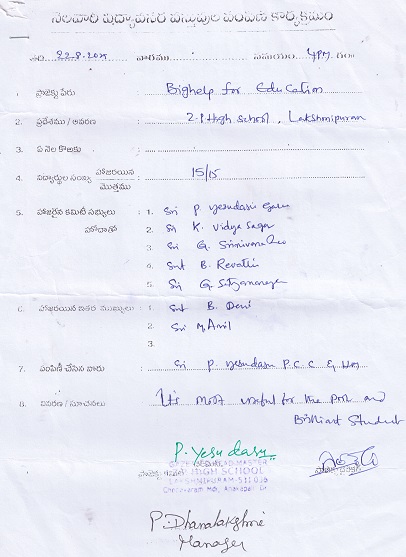 నెలవారి విద్యావసర వస్తువుల పంపిణి కార్యక్రమం
తేది 22.8.2015 వారము సమయం 4PM గం॥
1. ప్రాజెక్టు పేరు : Bighelp for Education
2. ప్రదేశము / ఆవరణ : Z.P High School, Lakshmipuram
3. ఏ నెల కొఱకు :
4. విద్యార్థుల సంఖ్య హాజరయిన / మొత్తము : 15/15
5. హాజరైన కమిటీ సభ్యులు : 1. Sri P Yesudasu Garu
హోదాతో 2. Sri K. Vidya Sagar
3. Sri G. Srinivasa Rao
4. Smt B. Revathi
5. Sri G. Satyanarayana
6. హాజరయిన ఇతర ముఖ్యులు : 1. Smt B. Devi
2. Sri M Anil
3.
7. పంపిణీ చేసిన వారు : Sri P Yesudasu P.C.C & HM
8. వివరణ / సూచనలు : It's most useful for the poor and
Brilliant Students
P. Yesu dasu
HIGH SCHOOL
P. Dhanalakshmi
Manager